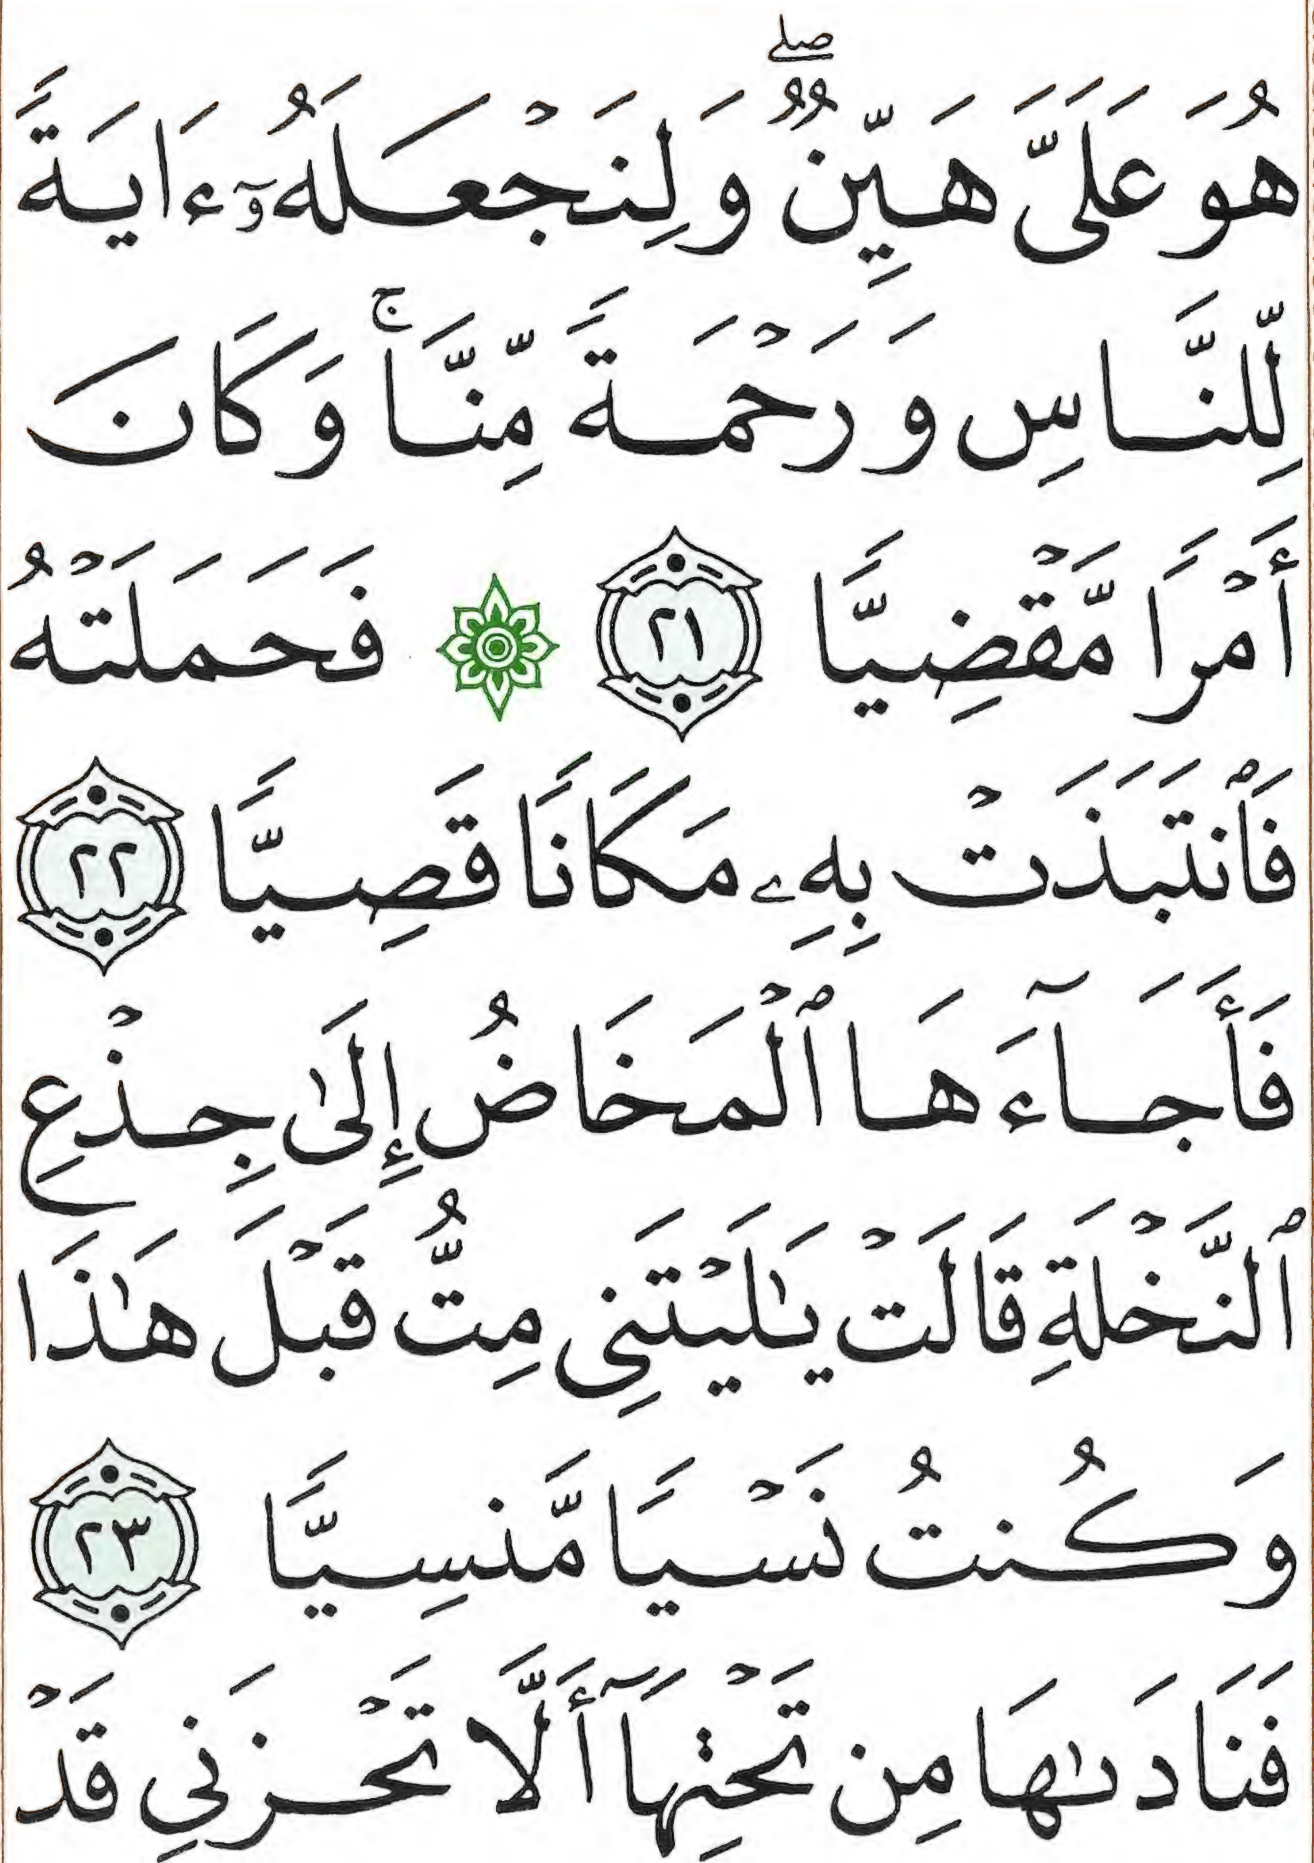 هُوَ عَلَىَّ هَيِّنٌ ۖ وَلِنَجْعَلَهُۥٓ ءَايَةً
لِّلنَّاسِ وَرَحْمَةً مِّنَّا ۚ وَكَانَ
أَمْرًا مَّقْضِيًّا ٢١ ۞ فَحَمَلَتْهُ
فَٱنتَبَذَتْ بِهِۦ مَكَانًا قَصِيًّا ٢٢
فَأَجَآءَهَا ٱلْمَخَاضُ إِلَىٰ جِذْعِ
ٱلنَّخْلَةِ قَالَتْ يَٰلَيْتَنِى مِتُّ قَبْلَ هَٰذَا
وَكُنتُ نَسْيًا مَّنسِيًّا ٢٣
فَنَادَىٰهَا مِن تَحْتِهَآ أَلَّا تَحْزَنِى قَدْ